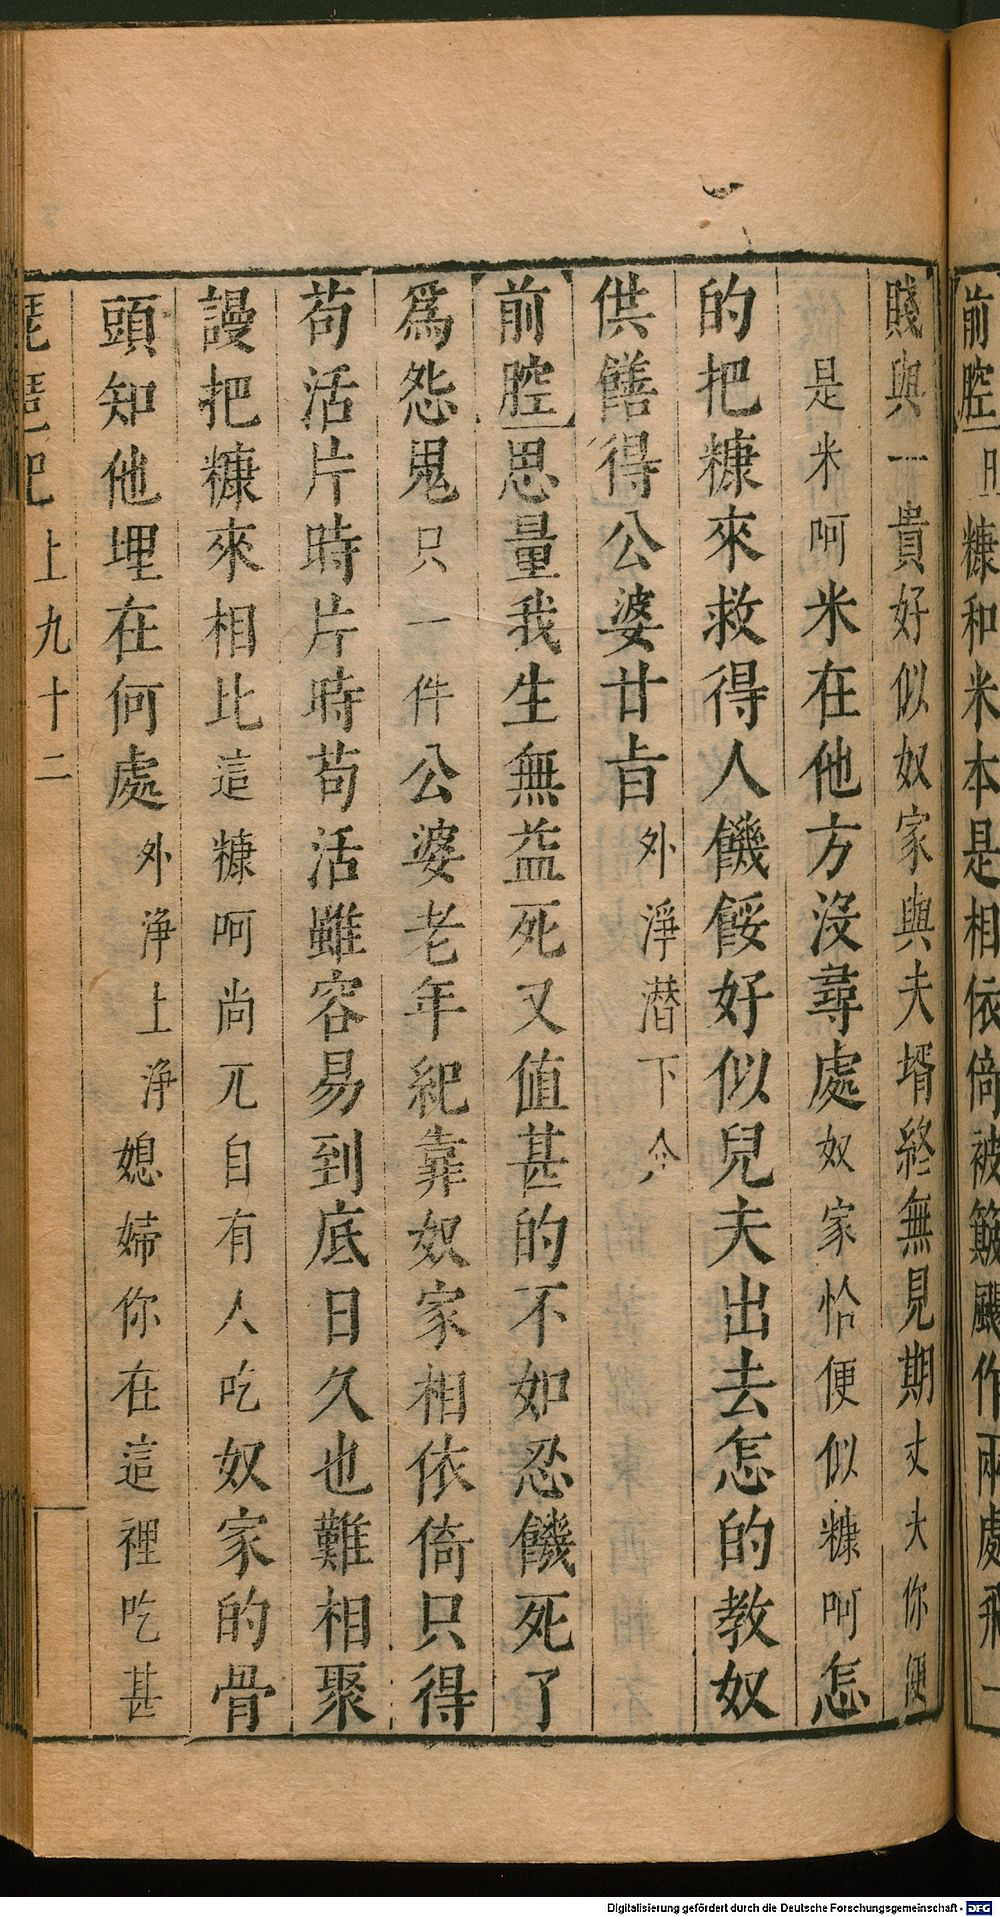 前腔 糠和米本是相依倚被簸颺作兩處飛一
賤與一貴好似奴家與夫壻終無見期丈夫你便
是米呵米在他方沒尋處奴家恰便似糠呵怎
的把糠來救得人饑餒好似兒夫出去怎的教奴
供饍得公婆甘旨外淨潜下介
前腔思量我生無益死又值甚的不如忍饑死了
爲怨鬼只一件公婆老年紀靠奴家相依倚只得
苟活片時片時苟活雖容易到底日久也難相聚
謾把糠來相比這糠呵尚兀自有人吃奴家的骨
頭知他埋在何處外浄上浄媳婦你在這裡吃甚
琵琶記 上 九十二
Digitalisierung gefördert durch die Deutsche Forschungsgemeinschaft - DFG